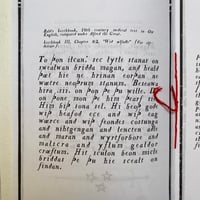 Bald's Leechbook, 10th century medical text in Old
English, compiled under Alfred the Great.
Leechbook III, Chapter 62, "Wið ælfadle" (for elf-
disease).
To þon ilcan: sec lytle stanas on
swealwan bridda magan, and heald
þæt hie ne hrinan eorþan ne
wætre neoþrum stanum. Beseowa
hira iii. on þon þe þu wille. Do
on þone mon þe him þearf sie.
Him biþ sona sel. Hi beoþ gode
wiþ heafod ece and wiþ eag
wærce and wiþ feondes costunga
and nihtgengan and lencten adle
and maran and wyrtforbore and
malscra and yflum gealdor
cræftum. Hit sculon beon micle
briddas þe þu hie scealt on
findan.